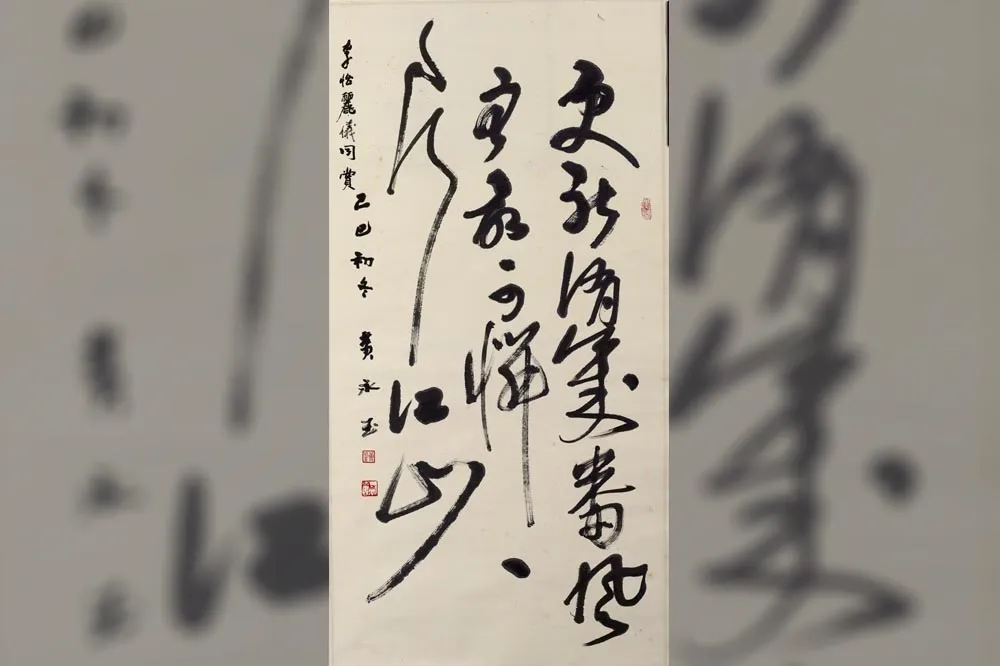 更能消幾番風
雨最可憐一
片江山
李怡麗儀同賞 己巳初冬 黃永玉